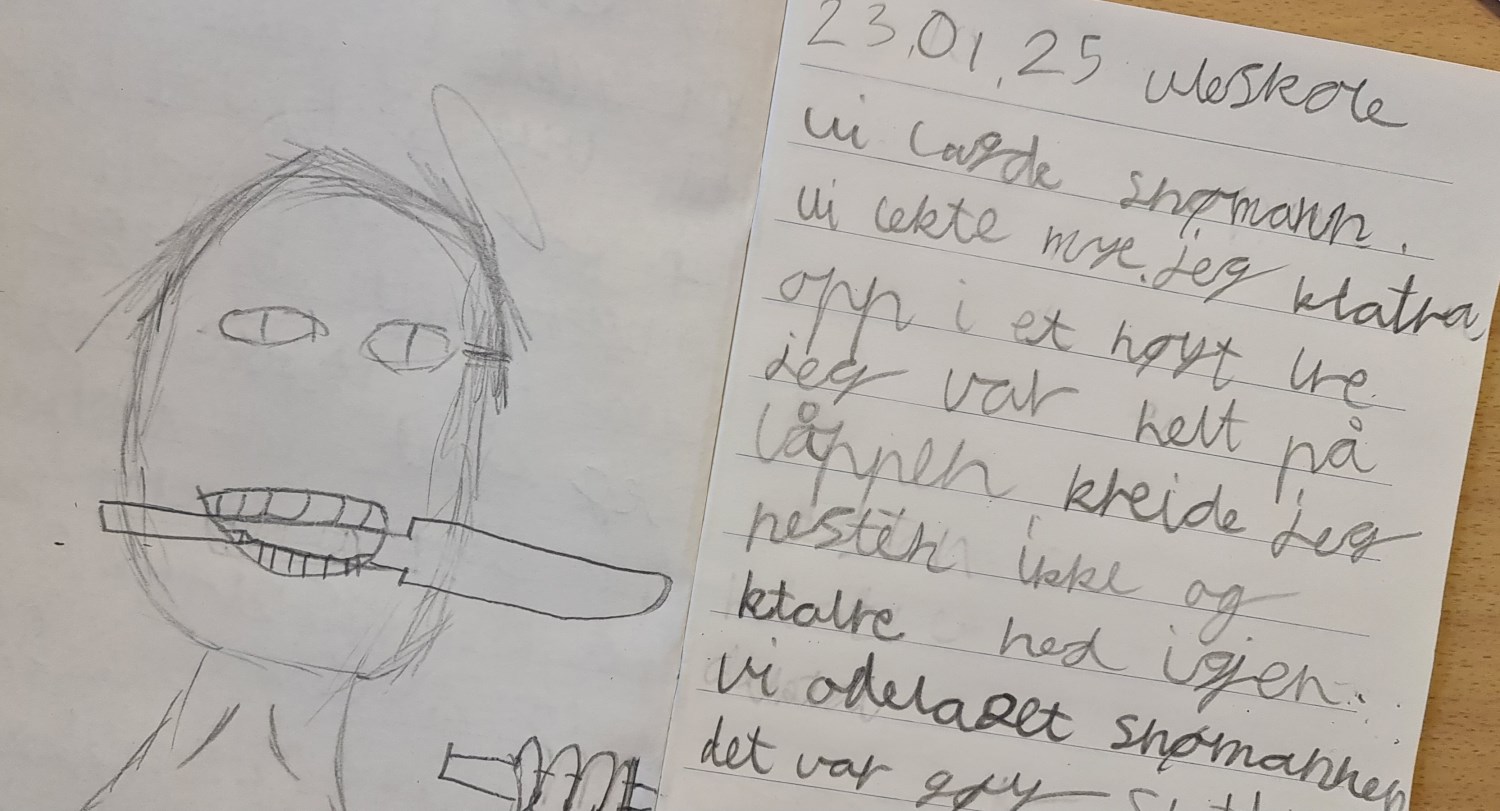 23.01.25 uteskole
vi lagde snømann.
vi lekte mye. jeg klatra
opp i et høyt tre
jeg var helt på
låppen kreide jeg
nesten ikke og
klatre ned igjen.
vi ødelaget snømannen
det var gøy